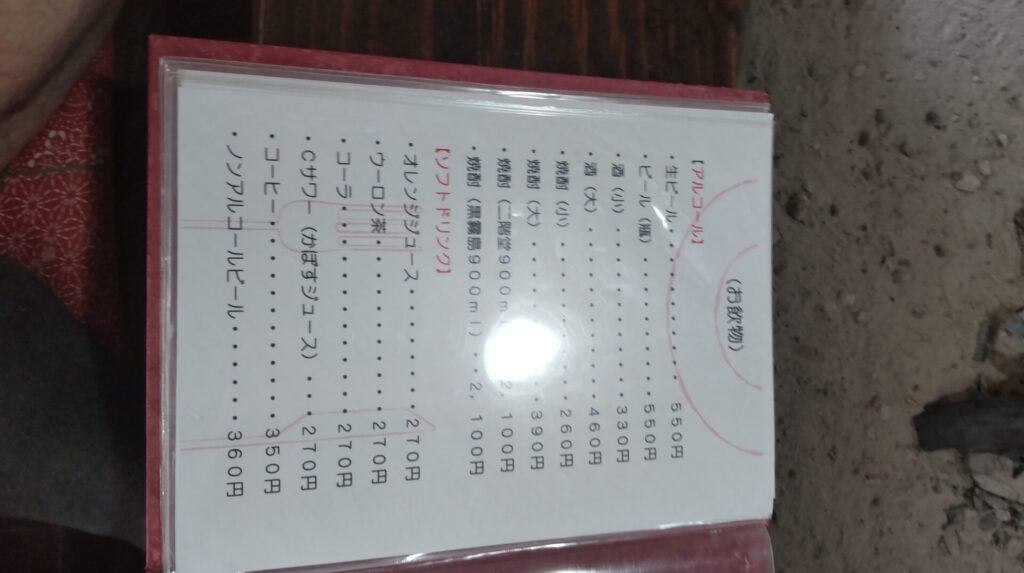 （お飲物）
【アルコール】
・生ビール・・・・・・・・・・５５０円
・ビール（瓶）・・・・・・・・５５０円
・酒（小）・・・・・・・・・・３３０円
・酒（大）・・・・・・・・・・４６０円
・焼酎（小）・・・・・・・・・２６０円
・焼酎（大）・・・・・・・・・３９０円
・焼酎（二階堂９００ｍ２，１００円
・焼酎（黒霧島９００ｍｌ）・・２，１００円
【ソフトドリンク】
・オレンジジュース・・・・・・・２７０円
・ウーロン茶・・・・・・・・・・２７０円
・コーラ・・・・・・・・・・・・２７０円
・Ｃサワー（かぼすジュース）・・２７０円
・コーヒー・・・・・・・・・・・３５０円
・ノンアルコールビール・・・・・・３６０円